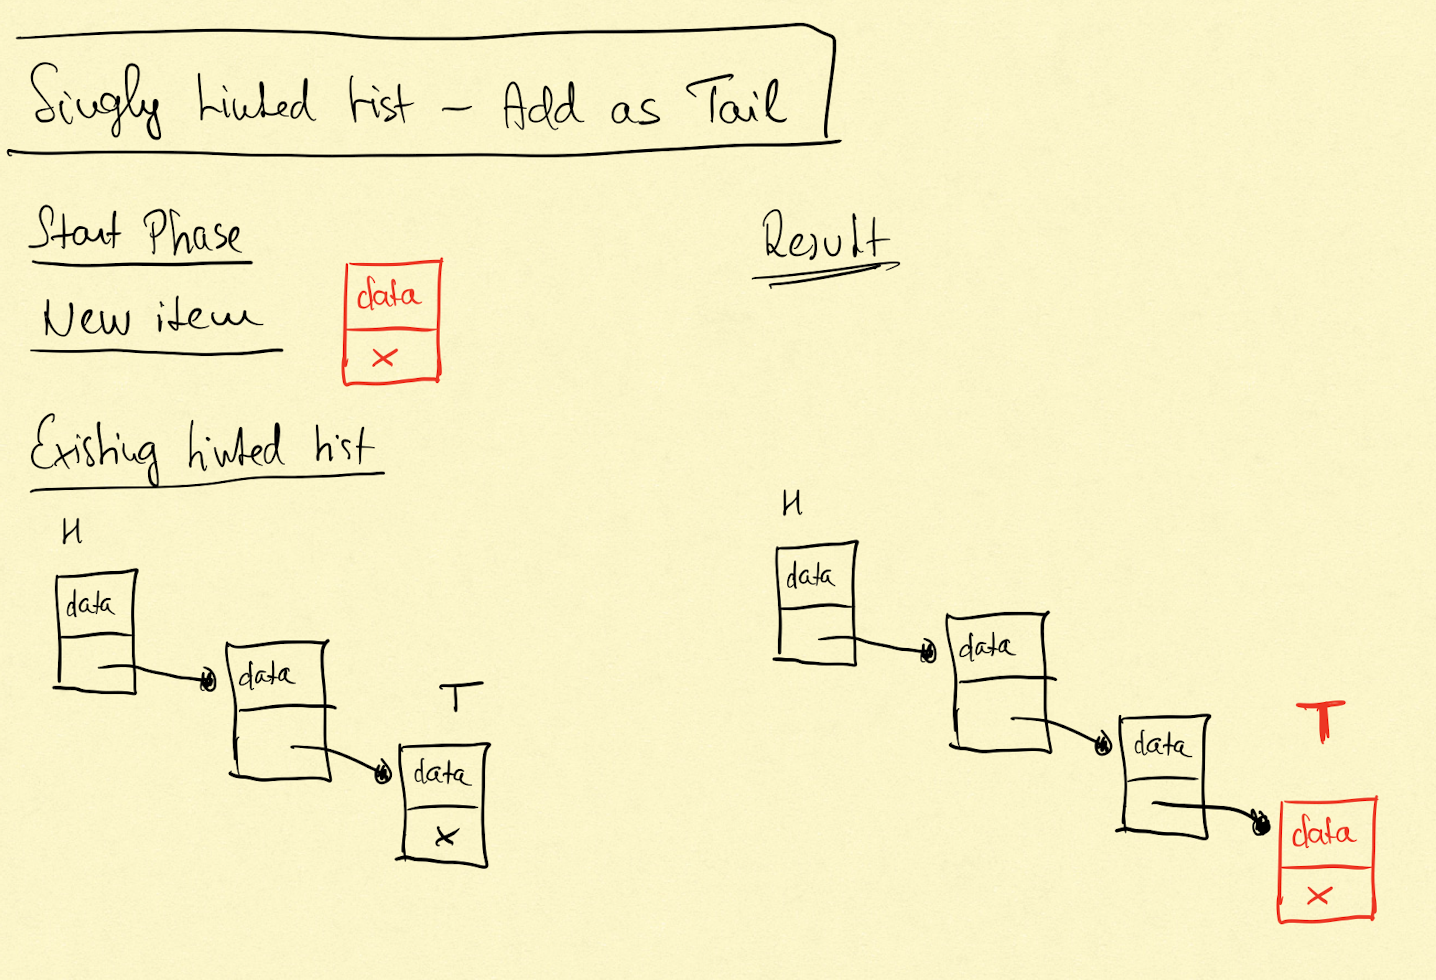 Singly Linked List - Add as Tail
Start Phase
New item
data
X
Existing Linked List
H
data
data
T
data
X
Result
H
data
data
data
T
data
X